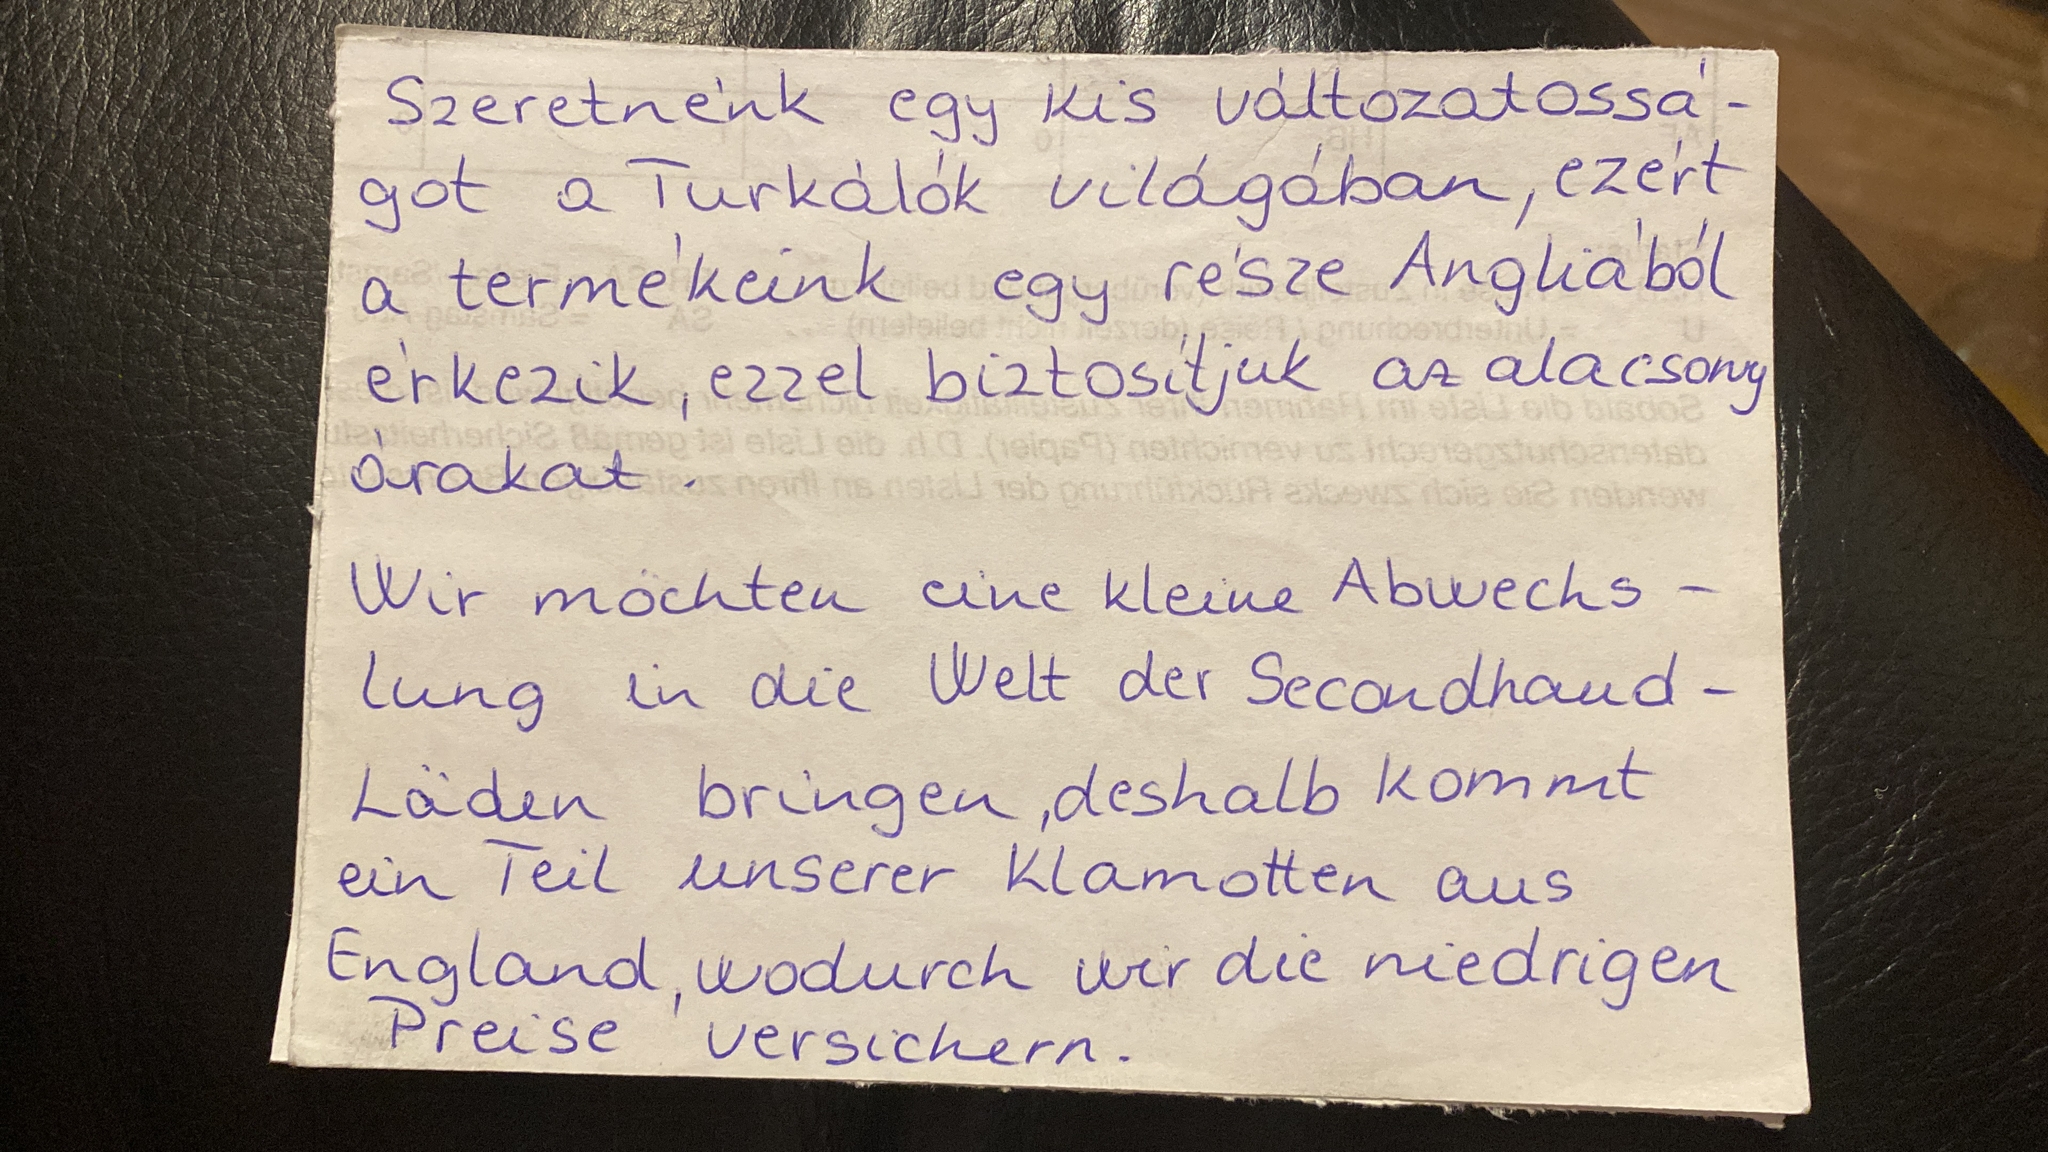 Szeretnénk egy kis változatossá-
got a Turkálók világában, ezért
a termékeink egy része Angliából
érkezik, ezzel biztosítjuk az alacsony
árakat.
Wir möchten eine kleine Abwechs-
lung in die Welt der Secondhand-
Läden bringen, deshalb kommt
ein Teil unserer Klamotten aus
England, wodurch wir die niedrigen
Preise versichern.